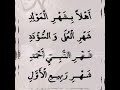 أَهْلًا بِشَهْرِ الْمَوْلِدِ
شَهْرِ الْعُلَى وَ السُّؤْدَدِ
شَهْرِ النَّبِيِّ أَحْمَدِ
شَهْرِ رَبِيعِ الْأَوَّلِ